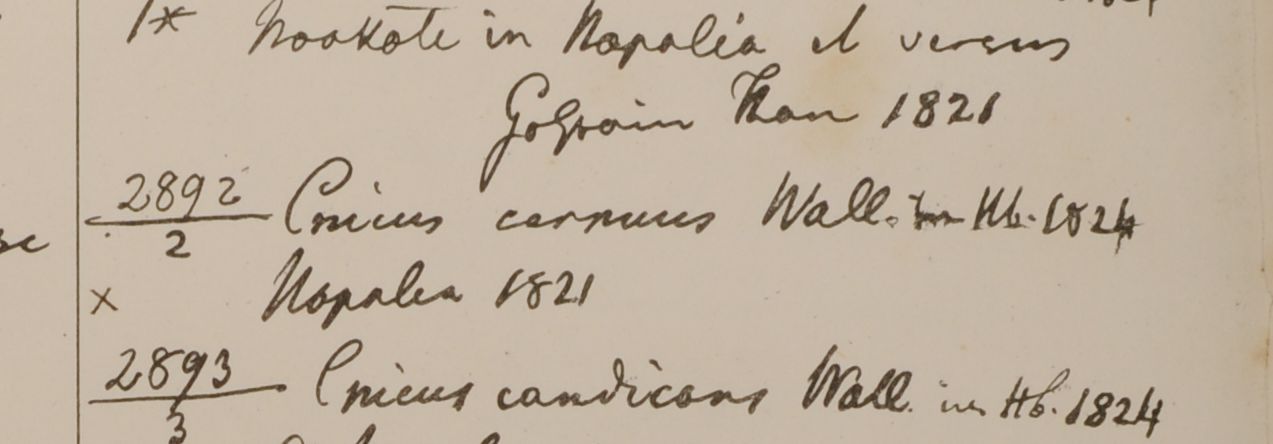 1* Noakote in Napalia et versus
Gossain Than 1821
2892 Cnicus cernuus Wall. in Hb. 1824
2
x Napalia 1821
2893 Cnicus candicans Wall. in Hb. 1824
3